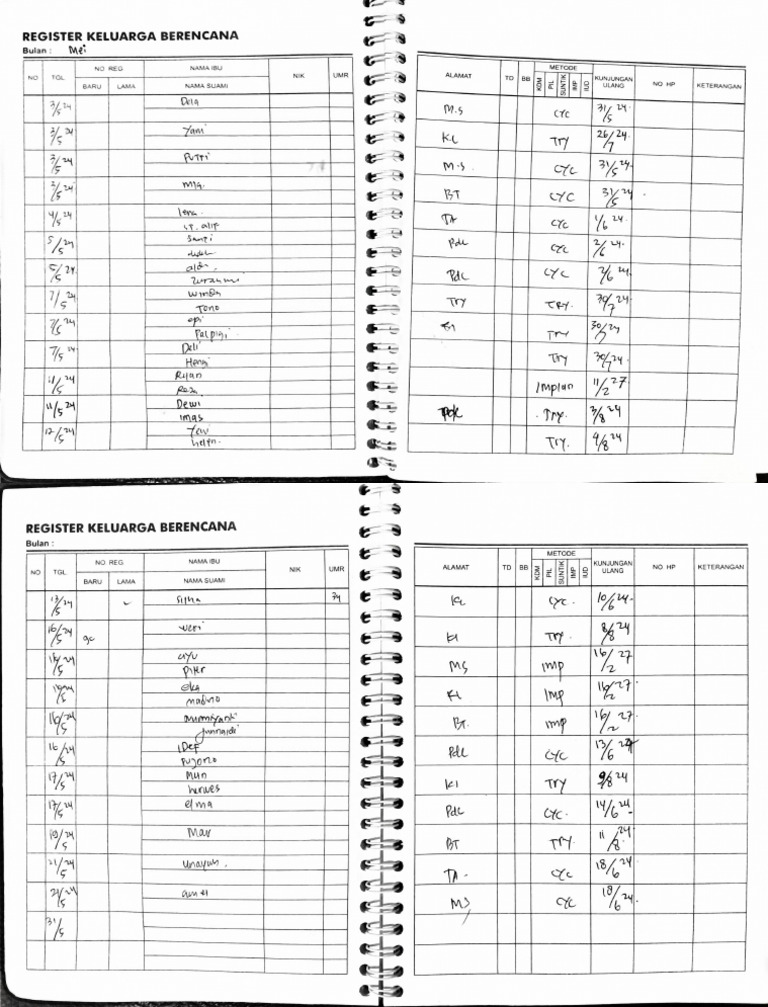 REGISTER KELUARGA BERENCANA
Bulan : Mei
NO TGL NO REG BARU LAMA NAMA IBU NAMA SUAMI NIK UMR
3/5 24 Dela
3/5 24 Yani
3/5 24 Putri
3/5 24
4/5 24 lena.
5/5 24 Santi
5/5 24
7/5 24
Tono
7/5 24
7/5 24 Deli
Hengi
11/5 24
11/5 24 Dewi
imas
12/5 24
ALAMAT TD BB METODE KDM PIL SUNTIK IMP IUD KUNJUNGAN ULANG NO HP KETERANGAN
M.S CYC 31/5 24
KL TRY 26/7 24
M.S CYC 31/5 24
BT CYC 31/5 24
TA CYC 1/6 24
Pdc CYC 2/6 24
Pdc CYC 2/6 24
Try TRY. 30/7 24
Try 30/7 24
Try 30/7 24
Implan 11/2 27
Pdc Try. 3/8 24
Try. 4/8 24
REGISTER KELUARGA BERENCANA
Bulan :
NO TGL NO REG BARU LAMA NAMA IBU NAMA SUAMI NIK UMR
13/5 24 Silna 34
16/5 24 weri
16/5 24 ayu
Piter
eka
16/5 24
Junnaidi
16/5 24
Pujono
17/5 24 Mun
17/5 24 elma
19/5 24 Mar
21/5 24
21/5 24
31/5
ALAMAT TD BB METODE KDM PIL SUNTIK IMP IUD KUNJUNGAN ULANG NO HP KETERANGAN
KL CYC. 10/6 24
KL Try. 8/8 24
MS Imp 16/2 27
KL Imp 16/2 27
BT. Imp 16/2 27
Pdc CYC 13/6 24
KL Try 9/8 24
Pdc CYC. 14/6 24
BT Try. 11/8 24
TA CYC 18/6 24
MS CYC 18/6 24